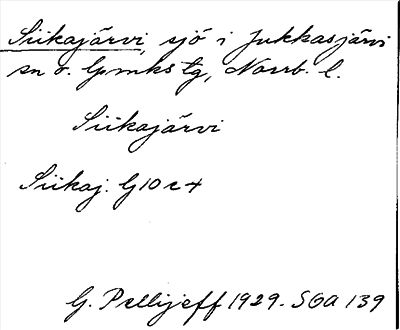 Siikajärvi, sjö i Jukkasjärvi
sn o. lpmks tg, Norrb. l.
Siikajärvi
Siikaj. G10c4
G. Pellijeff 1929. SOA 139